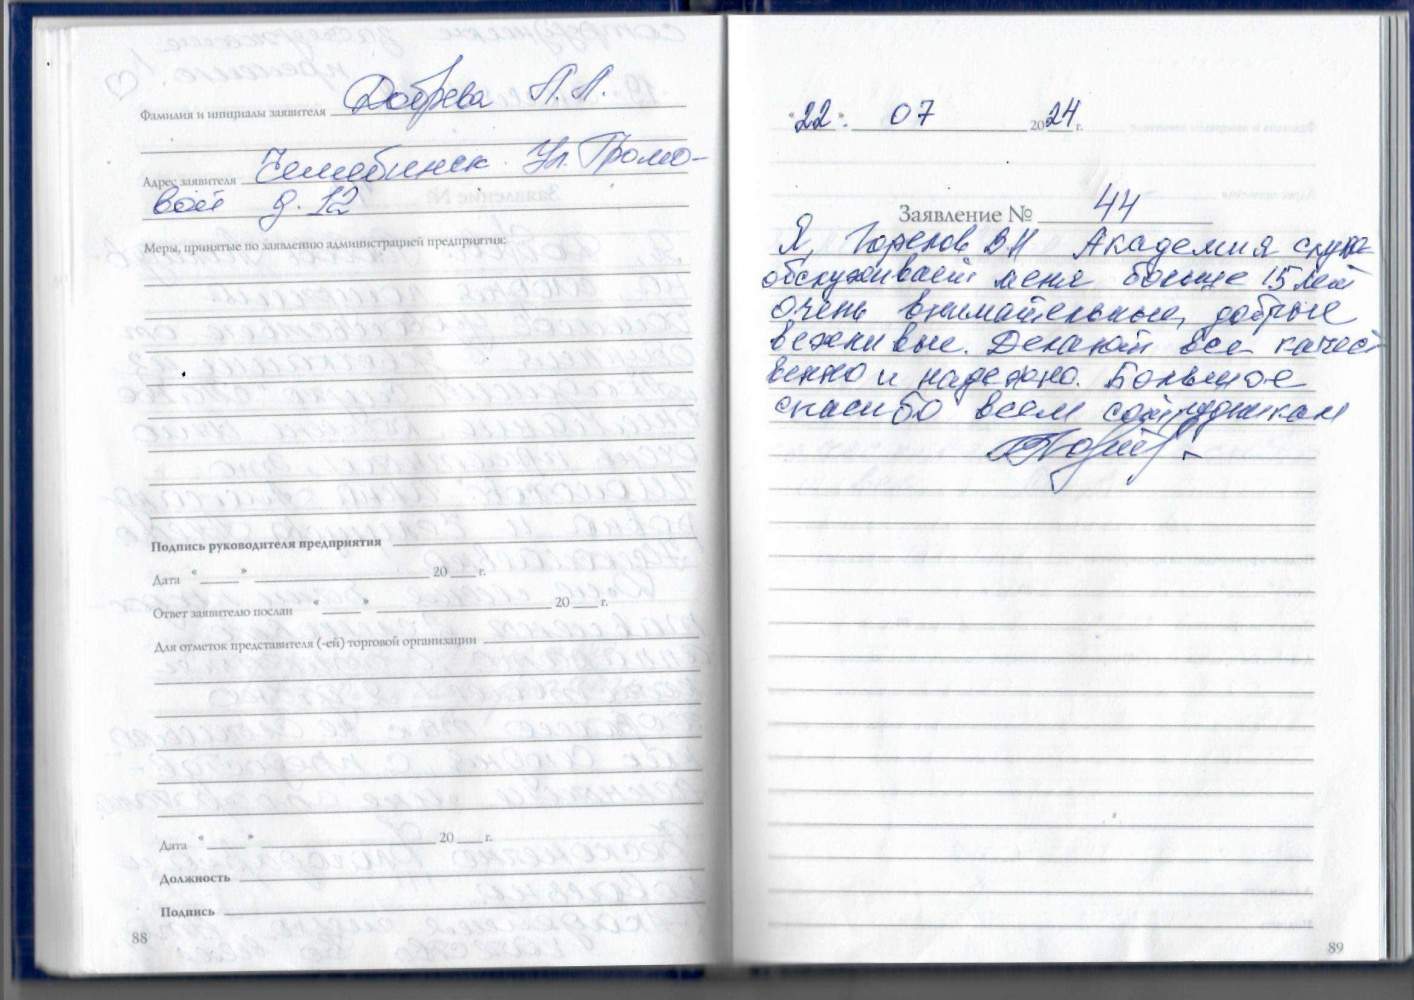 Фамилия и инициалы заявителя Добрева Л. Л.
Адрес заявителя Челябинск. Ул. Громо-
вой д. 12
Меры, принятые по заявлению администрацией предприятия:
Подпись руководителя предприятия
Дата " " 20 г.
Ответ заявителю послан " " 20 г.
Для отметок представителя (-ей) торговой организации
Дата " " 20 г.
Должность
Подпись
88
"22". 07 2024 г.
Заявление № 44
Я, ВН Академия слуха
обслуживает меня больше 15 лет
очень внимательные, добрые
вежливые. Делают все качест
венно и надежно. Большое
спасибо всем сотрудникам
89